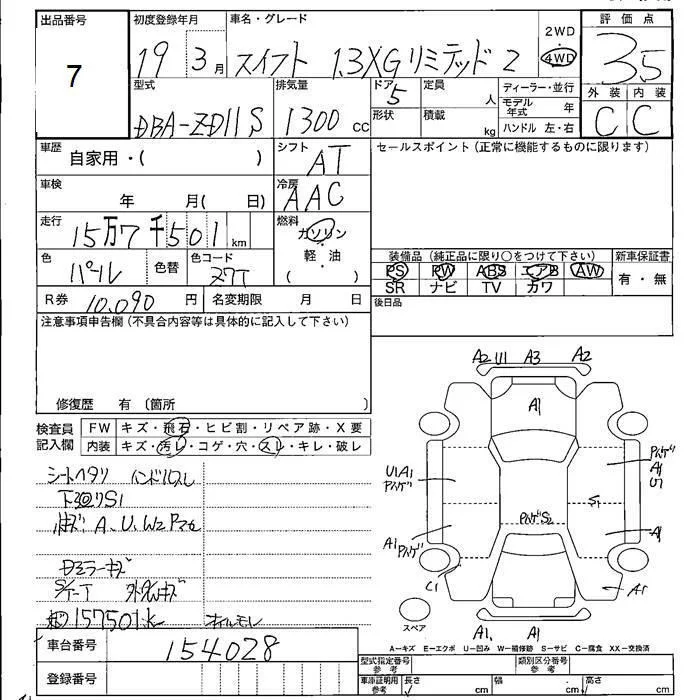 出品番号
7
初度登録年月
19 3月
車名・グレード
スイフト 1.3XGリミテッド2
2WD
・
4WD
評価点
3.5
外装 内装
C C
型式
DBA-ZD11S
排気量
1300 cc
ドア
5
形状
定員
人
積載
kg
ディーラー・並行
モデル年式 年
ハンドル 左・右
車歴
自家用・( )
シフト
AT
セールスポイント(正常に機能するものに限ります)
車検
年 月( 日)
冷房
AAC
走行
15万7千501 km
燃料
ガソリン
・
軽油
( )
色
パール
色替
色コード
Z7T
装備品(純正品に限り○をつけて下さい)
PS PW ABS エアB AW
SR ナビ TV カワ
新車保証書
有・無
R券 10,090 円
名変期限 月 日
後日品
注意事項申告欄(不具合内容等は具体的に記入して下さい)
修復歴 有(箇所 )
検査員記入欄
FW キズ・飛石・ヒビ割・リペア跡・X要
内装 キズ・汚レ・コゲ・穴・スレ・キレ・破レ
シートヘタリ ハンドルスレ
下廻りS1
A、U、W2
ミラーキズ
157501k オイルモレ
A2 U1 A3 A2
A1
U1A1
A1
U1
S1
A1
A1
C1
A1
スペア
A1 A1
A-キズ E-エクボ U-凹み W-補修跡 S-サビ C-腐食 XX-交換済
車台番号
154028
登録番号
型式指定番号
参考
類別区分番号
参考
車庫証明用
参考
長さ cm
幅 cm
高さ cm